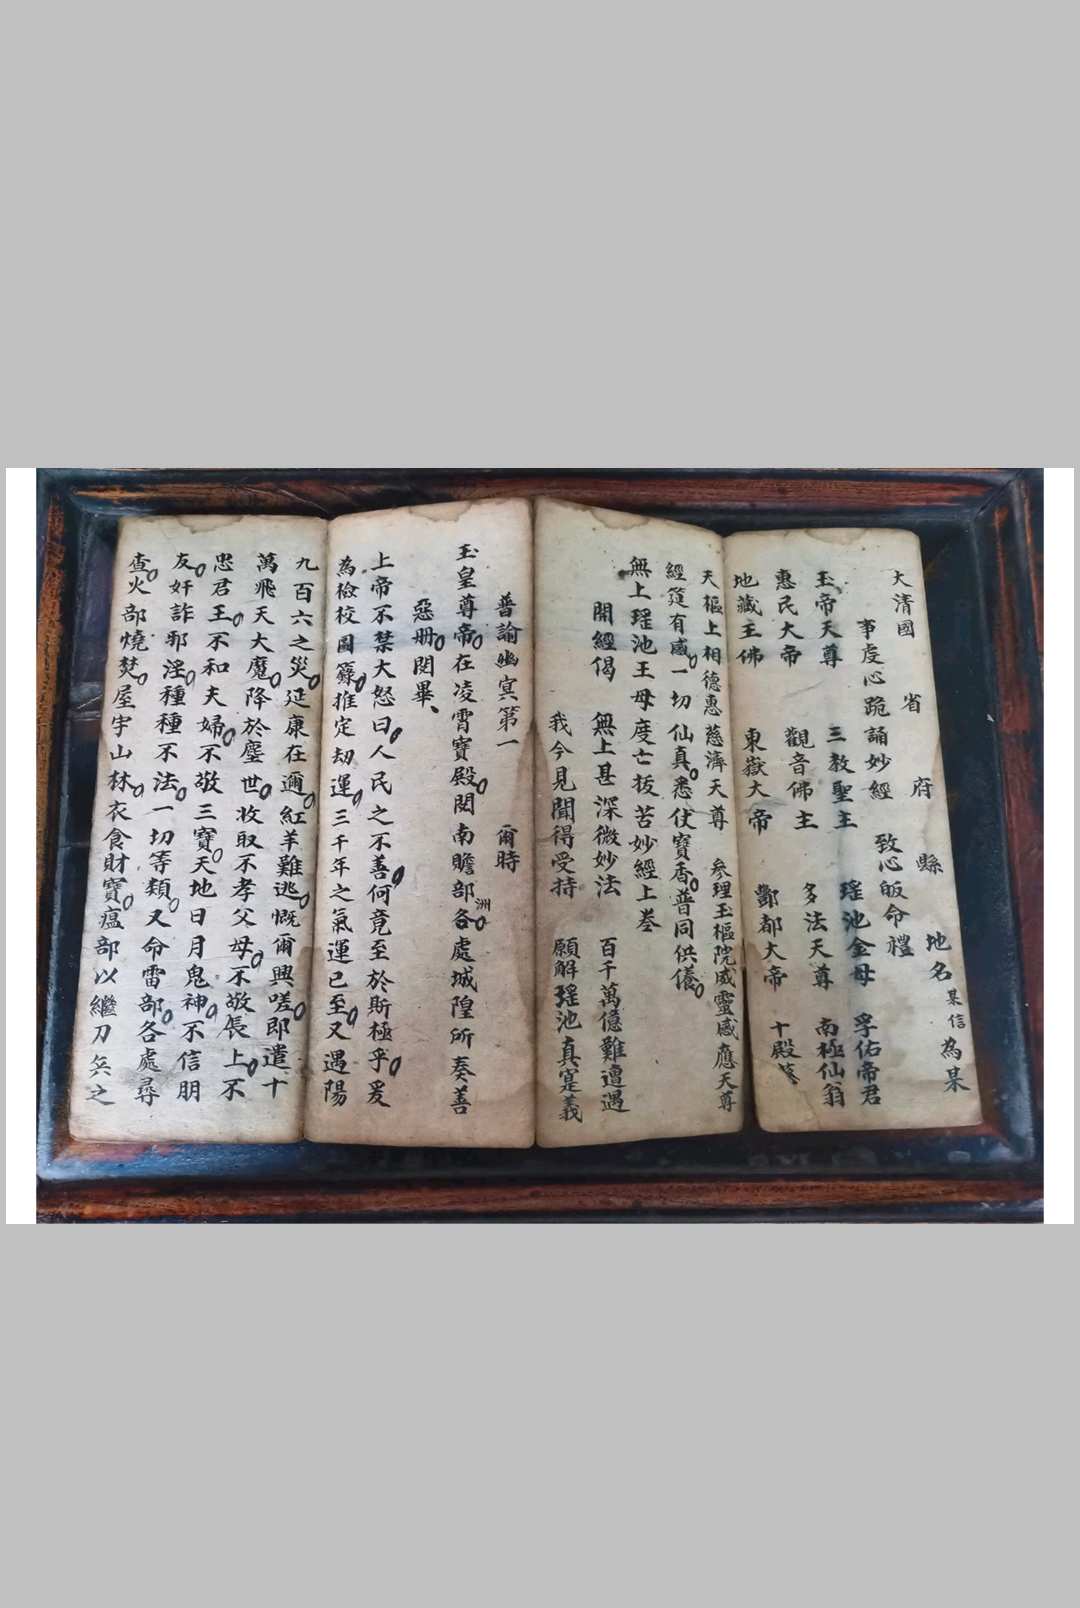 大清國 省 府 縣 地名 某信 為某
事虔心跪誦妙經 致心皈命禮
玉帝天尊 三教聖主 瑤池金母 孚佑帝君
惠民大帝 觀音佛主 多法天尊 南極仙翁
地藏主佛 東嶽大帝 酆都大帝 十殿
天樞上相德惠慈濟天尊 參理玉樞院威靈感應天尊
經筵有感一切仙真悉伏寶香普同供儀
無上瑤池王母度亡拔苦妙經上卷
開經偈 無上甚深微妙法 百千萬億難遭遇
我今見聞得受持 願解瑤池真寔義
普諭幽冥第一 爾時
玉皇尊帝在凌霄寶殿閱南贍部洲各處城隍所奏善
惡册閱畢、
上帝不禁大怒曰人民之不善何竟至於斯極乎爰
為檢校圖籙推定劫運三千年之氣運已至又遇陽
九百六之災延康在邇紅羊難逃慨爾興嗟即遣十
萬飛天大魔降於塵世收取不孝父母不敬長上不
忠君王不和夫婦不敬三寶天地日月鬼神不信朋
友奸詐邪淫種種不法一切等類又命雷部各處尋
查火部燒焚屋宇山林衣食財寶瘟部以繼刀兵之